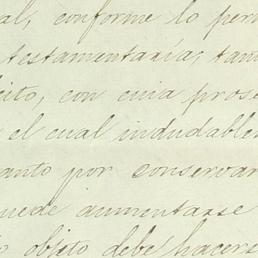 al, conforme lo per
testamentaría; tam
ito, con cuia prose
el cual indudable
anto por conservar
uede aumentarse
objeto debe hacers